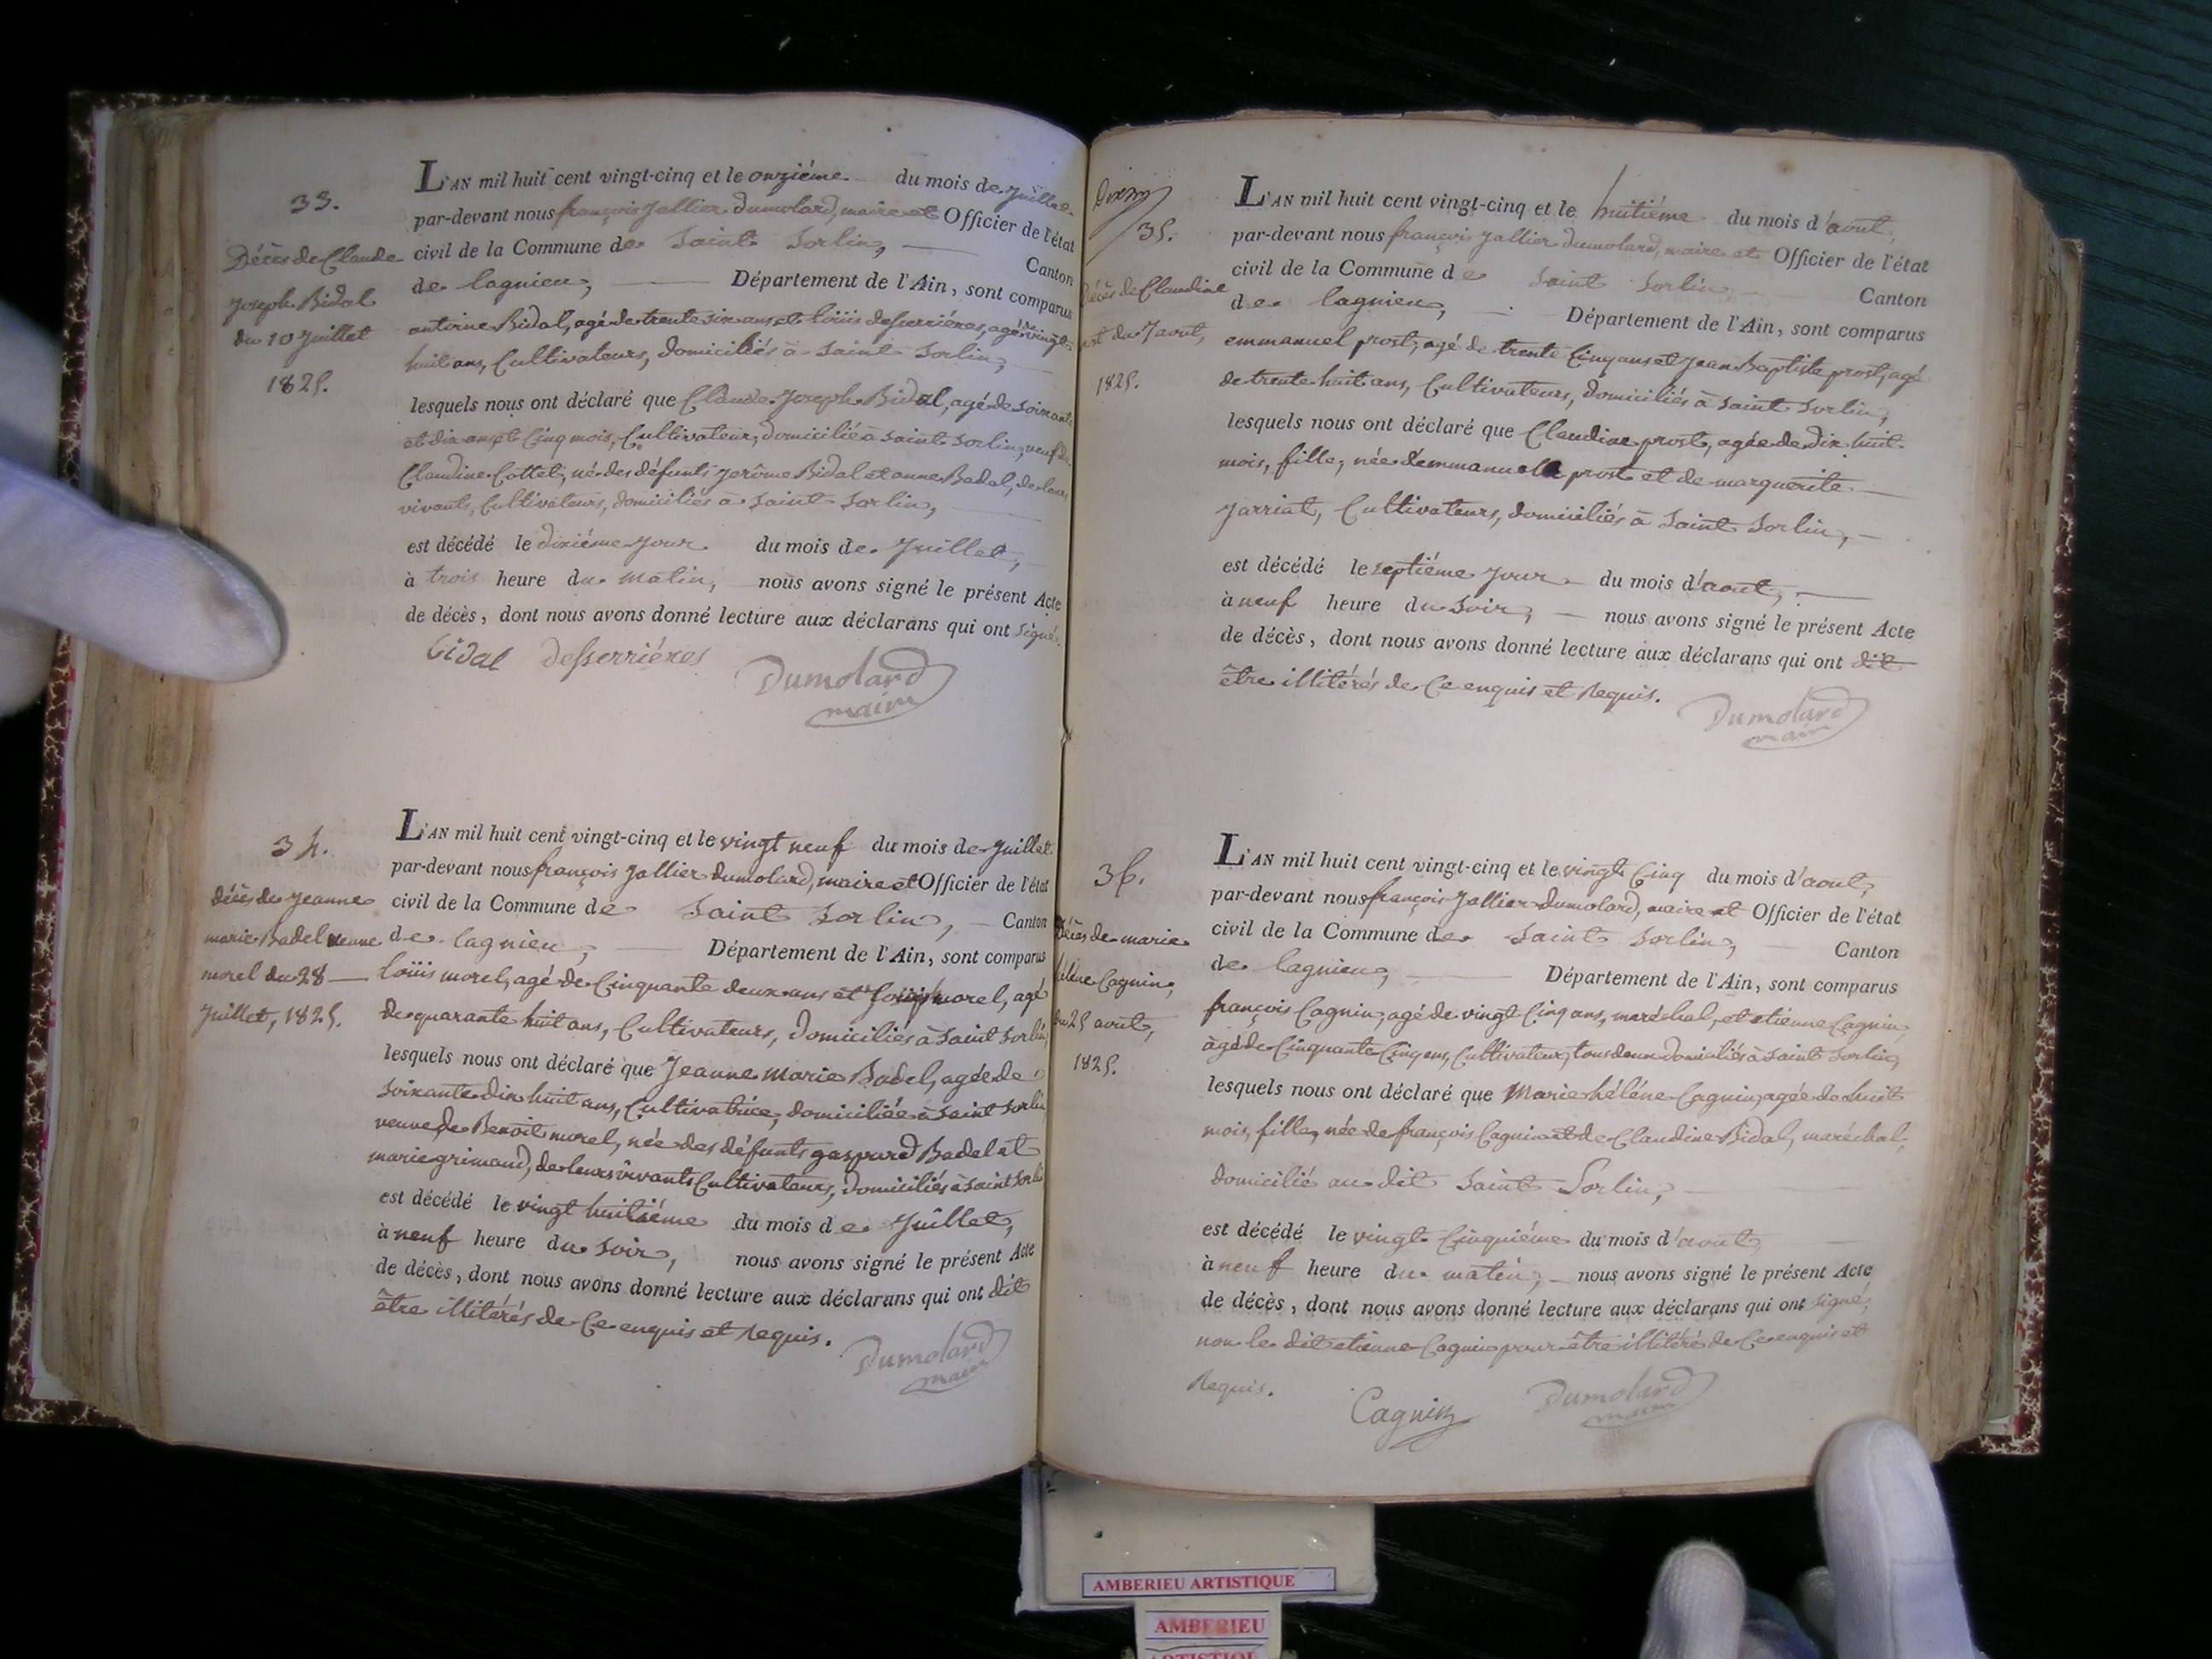 33.
Décès de Claude
Joseph Bidal
du 10 Juillet
1825.
L'AN mil huit cent vingt-cinq et le onziéme du mois de Juillet
par-devant nous françois Jallier Dumolard, maire et Officier de l'état
civil de la Commune de Saint Sorlin, Canton
de lagnieu, Département de l'Ain, sont comparus
antoine Bidal, agé de trente six ans et loüis desserriéres, agé de vingt
huit ans, Cultivateurs, domiciliés à Saint Sorlin,
lesquels nous ont déclaré que Claude Joseph Bidal, agé de soixante
et dix ans et Cinq mois, Cultivateur, domicilié à saint Sorlin, veuf de
Claudine Cottet, né des défunts Jerôme Bidal et anne Badal, de leurs
vivants, Cultivateurs, domiciliés à Saint Sorlin,
est décédé le dixiéme jour du mois de Juillet,
à trois heure du matin, nous avons signé le présent Acte
de décès, dont nous avons donné lecture aux déclarans qui ont signé.
bidal desserriéres Dumolard
maire
34.
décès de Jeanne
marie Badel veuve
morel du 28
Juillet, 1825.
L'AN mil huit cent vingt-cinq et le vingt neuf du mois de Juillet
par-devant nous françois Jallier dumolard, maire et Officier de l'état
civil de la Commune de Saint Sorlin, Canton
de lagnieu, Département de l'Ain, sont comparus
Loüis morel, agé de Cinquante deux ans et Joseph morel, agé
de quarante huit ans, Cultivateurs, domiciliés à Saint Sorlin,
lesquels nous ont déclaré que Jeanne Marie Badel, agée de
soixante dix huit ans, Cultivatrice, domiciliée à Saint Sorlin
veuve de Benoit morel, née des défunts gaspard Badel et
marie grimaud, de leurs vivants Cultivateurs, domiciliés à Saint Sorlin
est décédé le vingt huitiéme du mois de Juillet,
à neuf heure du soir, nous avons signé le présent Acte
de décès, dont nous avons donné lecture aux déclarans qui ont dit
être illitérés de Ce enquis et requis.
Dumolard
maire
35.
Décès de Claudine
du 7 aout,
1825.
L'AN mil huit cent vingt-cinq et le huitiéme du mois d'aout,
par-devant nous françois Jallier dumolard, maire et Officier de l'état
civil de la Commune de Saint Sorlin, Canton
de lagnieu, Département de l'Ain, sont comparus
emmanuel prost, agé de trente Cinq ans et Jean Baptiste prost, agé
de trente huit ans, Cultivateurs, domiciliés à Saint Sorlin,
lesquels nous ont déclaré que Claudine prost, agée de dix huit
mois, fille, née d'emmanuel prost et de marguerite
Jarriat, Cultivateurs, domiciliés à Saint Sorlin,
est décédé le septiéme jour du mois d'aout,
à neuf heure du soir, nous avons signé le présent Acte
de décès, dont nous avons donné lecture aux déclarans qui ont dit
être illitérés de Ce enquis et requis.
Dumolard
maire
36.
Décès de marie
hélène Cagnin,
du 25 aout,
1825.
L'AN mil huit cent vingt-cinq et le vingt Cinq du mois d'aout,
par-devant nous françois Jallier dumolard, maire et Officier de l'état
civil de la Commune de Saint Sorlin, Canton
de lagnieu, Département de l'Ain, sont comparus
françois Cagnin, agé de vingt Cinq ans, maréchal, et etienne Cagnin,
agé de Cinquante Cinq ans, Cultivateur, tous deux domiciliés à saint Sorlin,
lesquels nous ont déclaré que Marie hélène Cagnin, agée de huit
mois, fille, née de françois Cagnin et de Claudine Bidal, maréchal,
domicilié au dit Saint Sorlin,
est décédé le vingt Cinquiéme du mois d'aout,
à neuf heure du matin, nous avons signé le présent Acte
de décès, dont nous avons donné lecture aux déclarans qui ont signé,
non le dit etienne Cagnin pour être illitéré de Ce enquis et
Requis.
Cagnin Dumolard
maire
AMBERIEU ARTISTIQUE
AMBERIEU
ARTISTIQUE